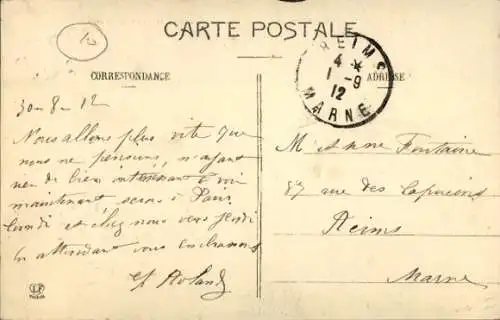 CARTE POSTALE
CORRESPONDANCE
ADRESSE
REIMS
4 *
1 - 9
12
MARNE
30-8-12
Nous allons plus vite que
nous ne pensions, n'ayant
rien de bien interessant à voir
maintenant serons à Paris
Lundi et chez nous vers Jeudi
En attendant vous embrassons
Roland
M et Mme Fontaine
87 rue des Capucins
Reims
Marne